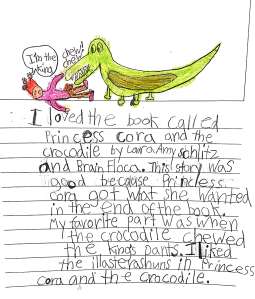 I'm the king
chew! chew!
I loved the book called
Princess cora and the
crocodile by Laura Amy schlitz
and Brian Floca. This story was
good because Princess
cora got what she wanted
in the end of the book.
My favorite part was when
the crocodile chewed
the kings pants. I liked
the illasterashuns in Princess
cora and the crocodile.